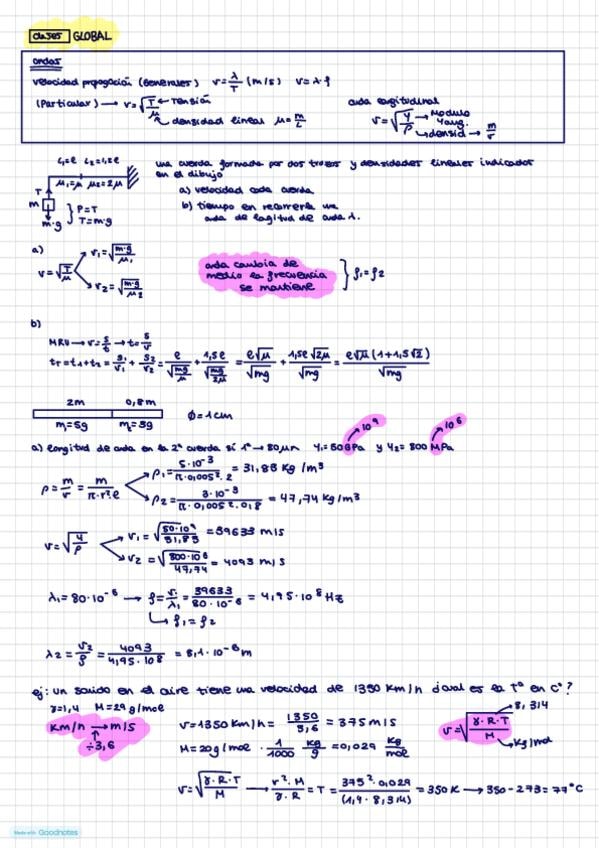 clases GLOBAL
ondas
velocidad propagación (Generales) v=λ/T (m/s) v=λ·f
(Particular) → v=√(T/μ) ← Tensión
densidad lineal μ=m/L
onda longitudinal
v=√(Y/ρ) → Modulo Young.
densid → m/v
L₁=e L₂=1,5e
μ₁=μ μ₂=2μ
T
m
m·g
P=T
T=m·g
una cuerda formada por dos trozos y densidades lineales indicados
en el dibujo
a) velocidad cada cuerda
b) tiempo en recorrerla una
onda de logitud de onda λ.
a)
v=√(T/μ)
v₁=√(m·g/μ₁)
v₂=√(m·g/μ₂)
onda cambia de
medio la frecuencia
se mantiene
f₁=f₂
b)
MRU → v=s/t → t=s/v
tr=t₁+t₂= s₁/v₁ + s₂/v₂ = e/√(mg/μ) + 1,5e/√(mg/2μ) = e√μ/√mg + 1,5e√2μ/√mg = e√μ(1+1,5√2)/√mg
2m 0,8m
m₁=5g m₂=3g
∅=1cm
a) longitud de onda en la 2ª cuerda si 1ª → 80μm Y₁=50GPa y Y₂=800MPa
10⁹
10⁶
ρ=m/v=m/(π·r²·e)
ρ₁=5·10⁻³/(π·0,005²·2) = 31,83 Kg/m³
ρ₂=3·10⁻³/(π·0,005²·0,8) = 47,74 Kg/m³
v=√(Y/ρ)
v₁=√(50·10⁹/31,83) =39633 m/s
v₂=√(800·10⁶/47,74) =4093 m/s
λ₁=80·10⁻⁶ → f=v₁/λ₁=39633/(80·10⁻⁶) = 4,95·10⁸ Hz
f₁=f₂
λ₂=v₂/f=4093/(4,95·10⁸) =8,1·10⁻⁶m
ej: un sonido en el aire tiene una velocidad de 1350 Km/h ¿cual es la Tª en Cº?
γ=1,4 M=29g/mol
Km/h → m/s
÷3,6
v=1350 Km/h= 1350/3,6 =375 m/s
M=29g/mol · 1/1000 Kg/g =0,029 Kg/mol
v=√(γ·R·T/M)
8,314
Kg/mol
v=√(γ·R·T/M) → v²·M/(γ·R) =T= 375²·0,029/(1,4·8,314) =350K → 350-273=77ºC
Made with Goodnotes